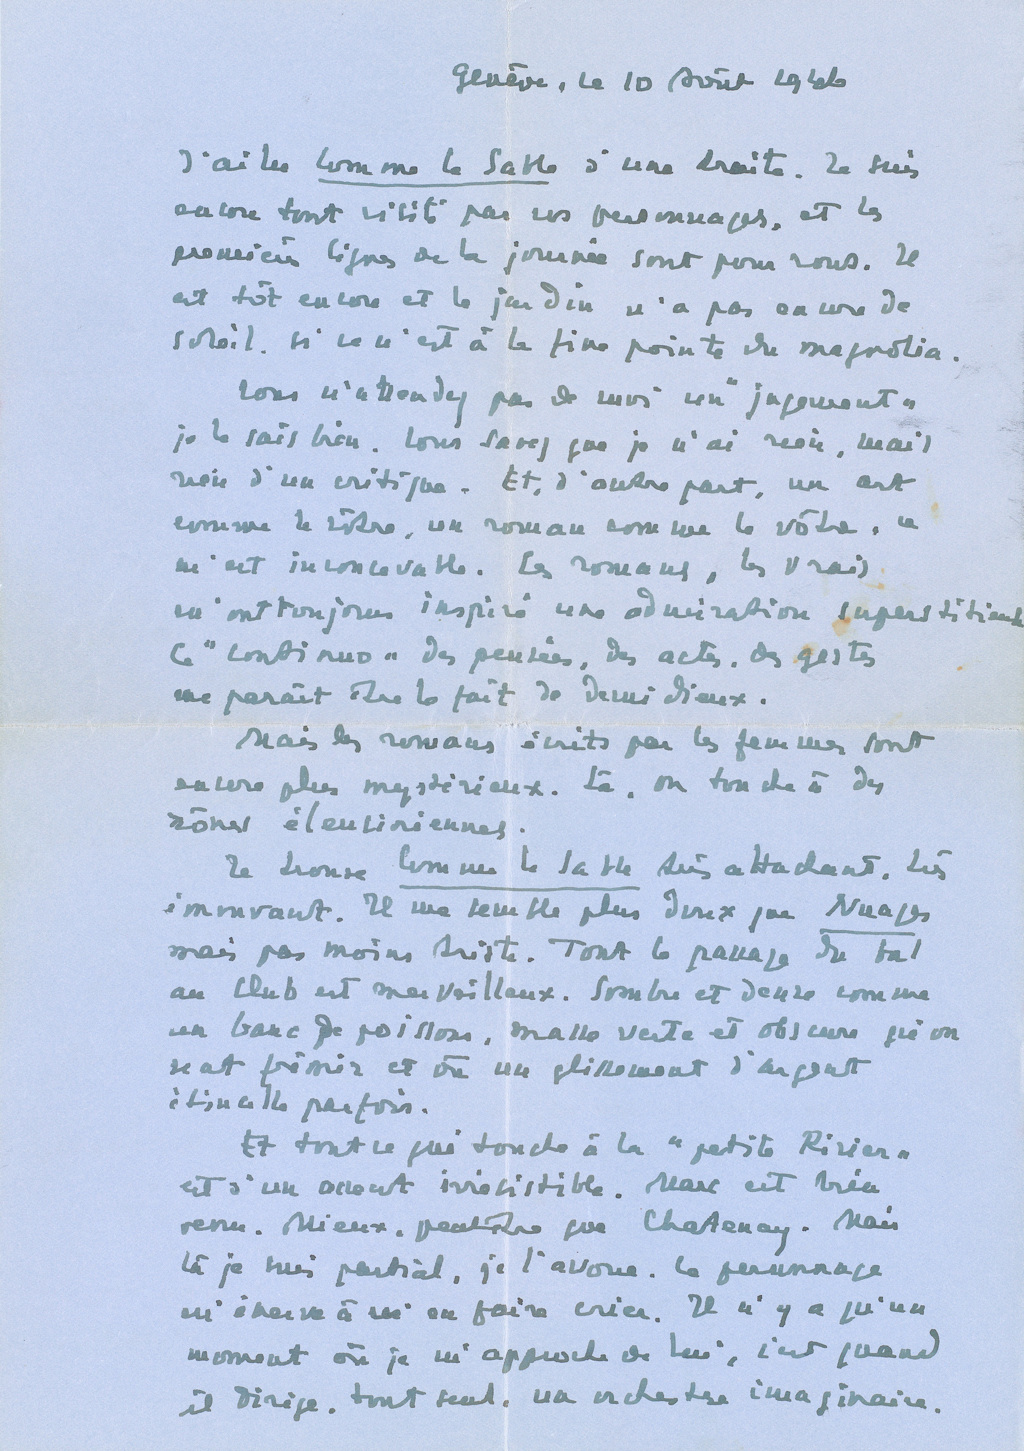 Genève, le 10 Août 1946
J'ai lu Comme le Sable d'une traite. Je suis
encore tout visité par vos personnages, et les
premières lignes de la journée sont pour vous. Il
est tôt encore et le jardin n'a pas encore de
soleil. si ce n'est à la fine pointe du magnolia.
Vous n'attendez pas de moi un "jugement"
je le sais bien. Vous savez que je n'ai rien, mais
rien d'un critique. Et, d'autre part, un art
comme le vôtre, un roman comme le vôtre, ce
m'est inconcevable. Les romans, les vrais
m'ont toujours inspiré une admiration superstitieuse
Ce "continuo" des pensées, des actes, des gestes
me paraît être le fait de demi dieux.
Mais les romans écrits par les femmes sont
encore plus mystérieux. Là, on touche à des
zônes éleusiriennes.
Je trouve Comme le Sable très attachant, très
émouvant. Il me semble plus doux que Nuages
mais pas moins triste. Tout le passage du bal
au Club est merveilleux. Sombre et dense comme
un banc de poissons, masse verte et obscure qu'on
sent frémir et où un glissement d'argent
étincelle parfois.
Et tout ce qui touche à la "petite Rivier"
est d'un accent irrésistible. Marc est bien
venu. Mieux, peut-être que Chatenay. Mais
là je suis partial, je l'avoue. Ce personnage
m'énerve à m'en faire crier. Il n'y a qu'un
moment où je m'approche de lui, c'est quand
il dirige, tout seul, un orchestre imaginaire.